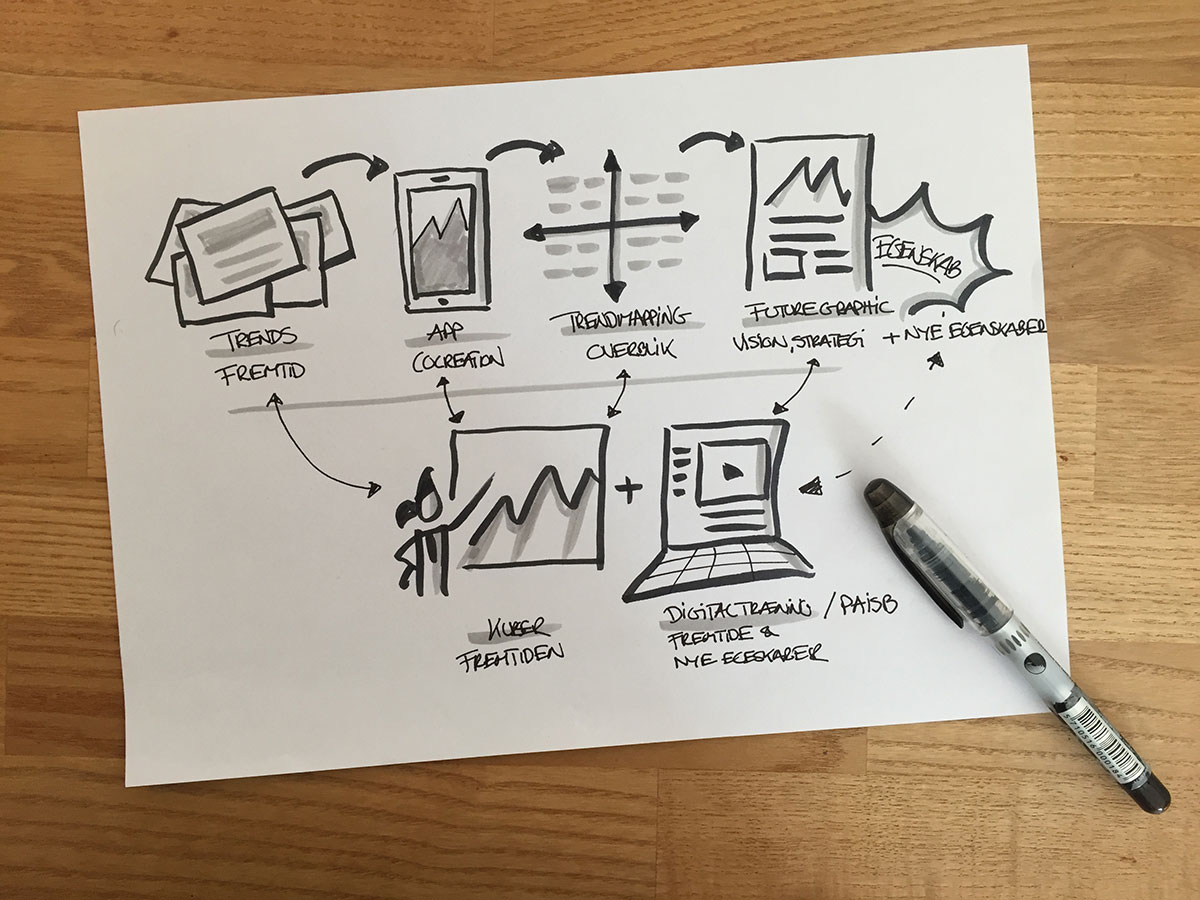 EGENSKAB
TRENDS
FREMTID
APP
COCREATION
TRENDMAPPING
OVERBLIK
FUTUREGRAPHIC
VISION, STRATEGI + NYE EGENSKABER
+
KUBER
FREMTIDEN
DIGITAL TRÆNING / PAISB
FREMTIDE &
NYE EGESKABER
5710516000184